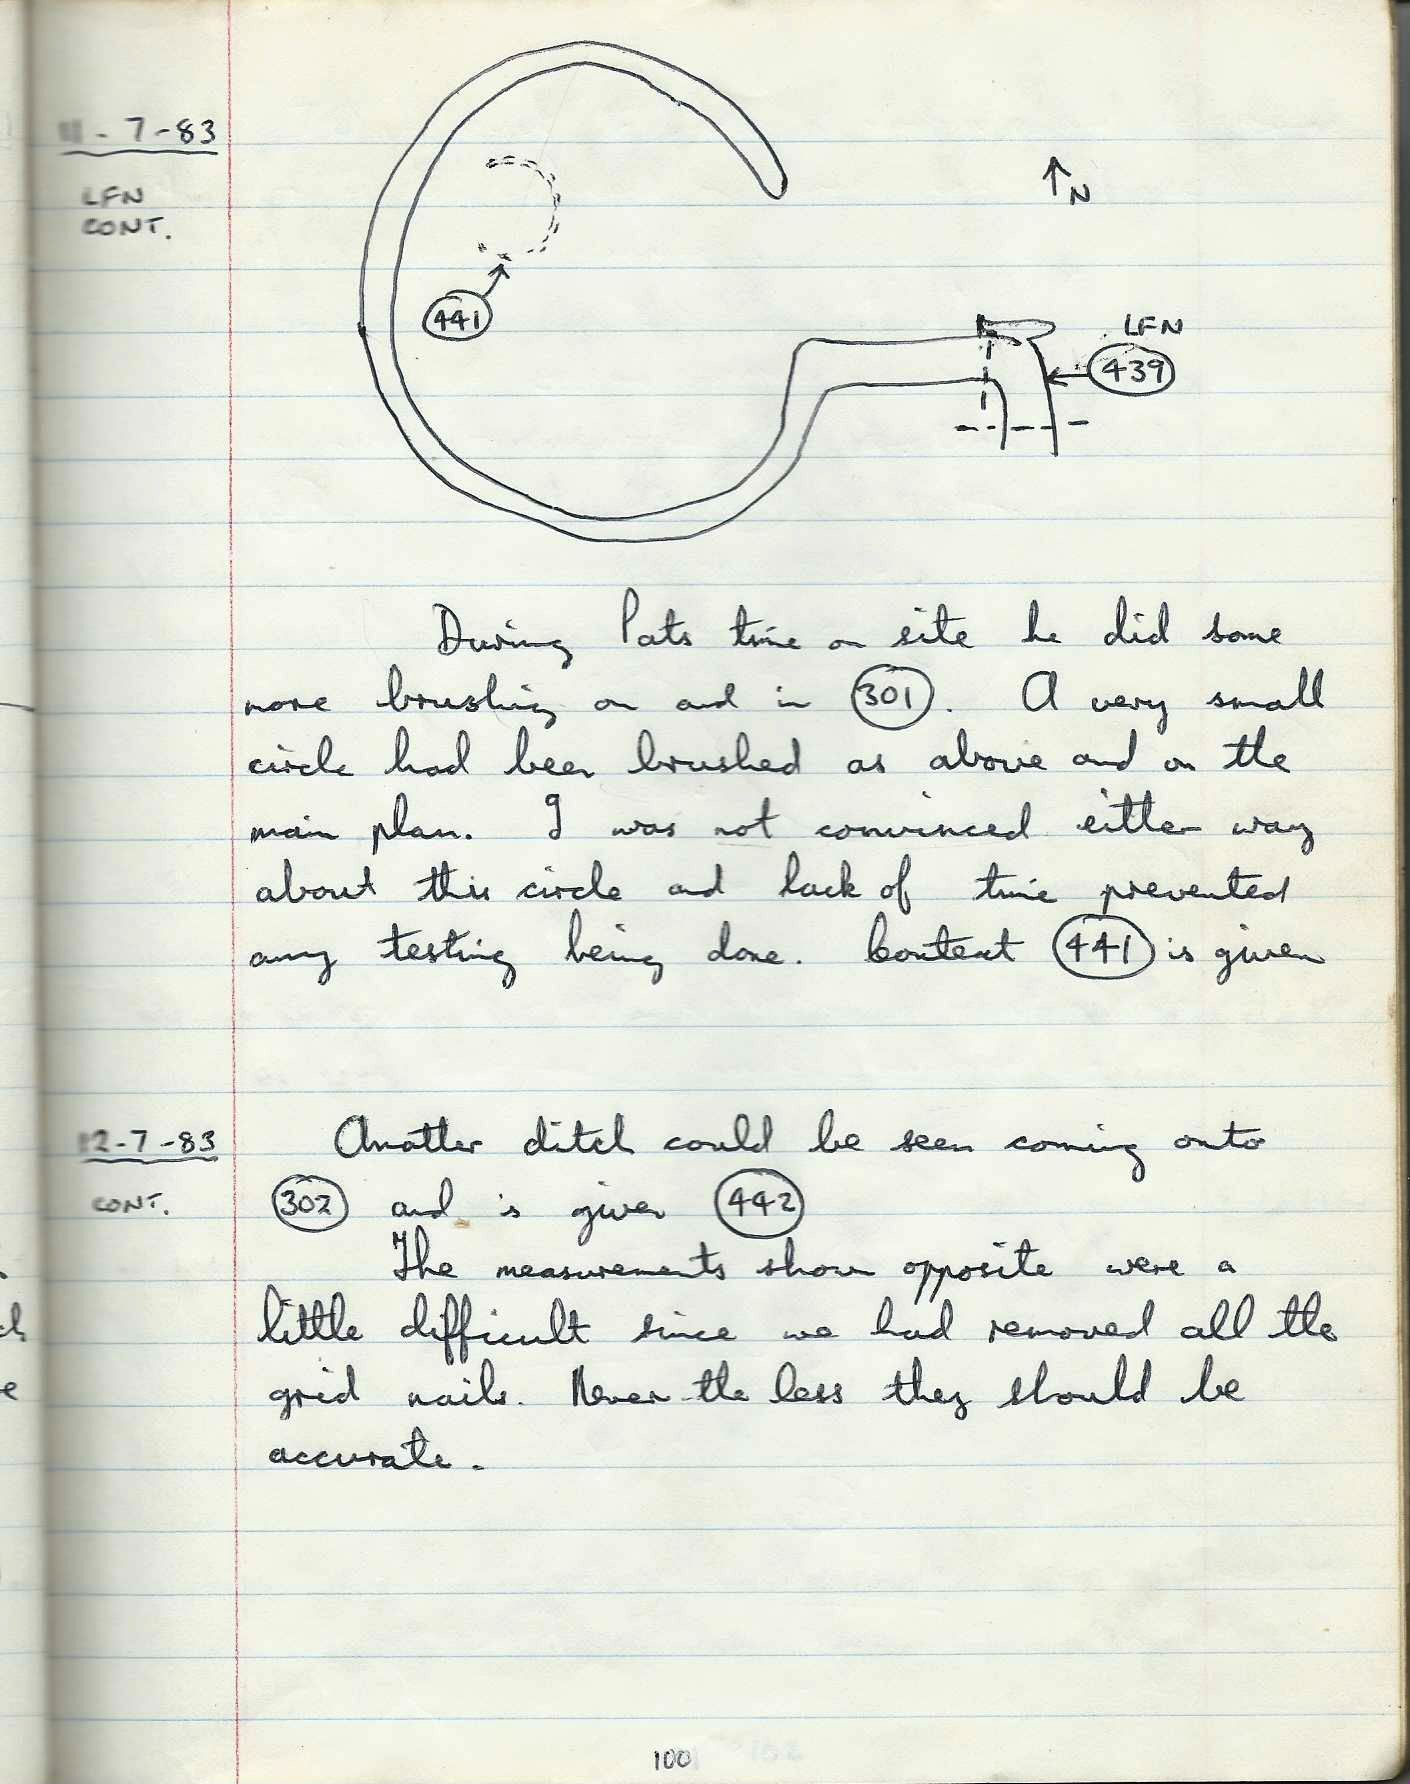 11-7-83
LFN
CONT.
N
441
LFN
439
During Pats time on site he did some
more brushing on and in 301. A very small
circle had been brushed as above and on the
main plan. I was not convinced either way
about this circle and lack of time prevented
any testing being done. Context 441 is given
12-7-83
CONT.
Another ditch could be seen coming onto
302 and is given 442
The measurements shown opposite were a
little difficult since we had removed all the
grid nails. Never the less they should be
accurate.
100